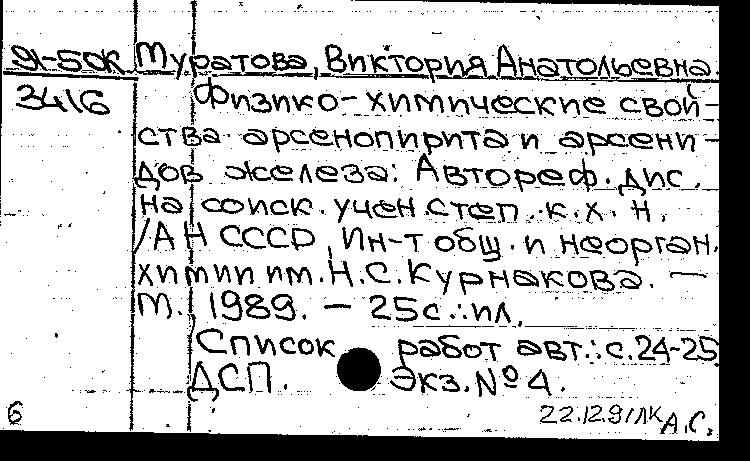 91-50к Муратова, Виктория Анатольевна.
3416 Физико-химические свой-
ства арсенопирита и арсени-
дов железа: Автореф. дис.
на соиск. учен. степ. к. х. н.
/АН СССР, Ин-т общ. и неорган.
химии им. Н.С. Курнакова. —
М., 1989. – 25с.: ил.
Список работ авт.: с. 24-25
ДСП. Экз. № 4.
6 22.12.91 А.С.